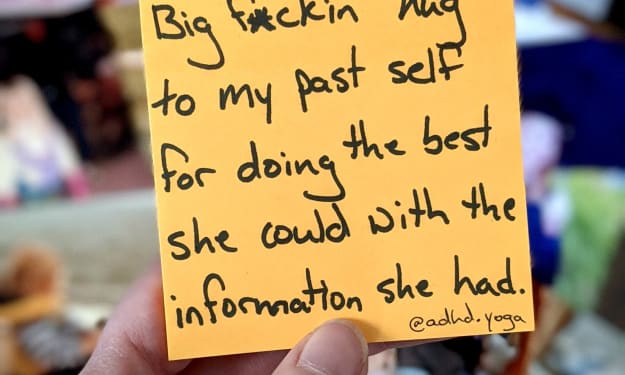 Big f*ckin hug
to my past self
for doing the best
she could with the
information she had.
@adhd.yoga